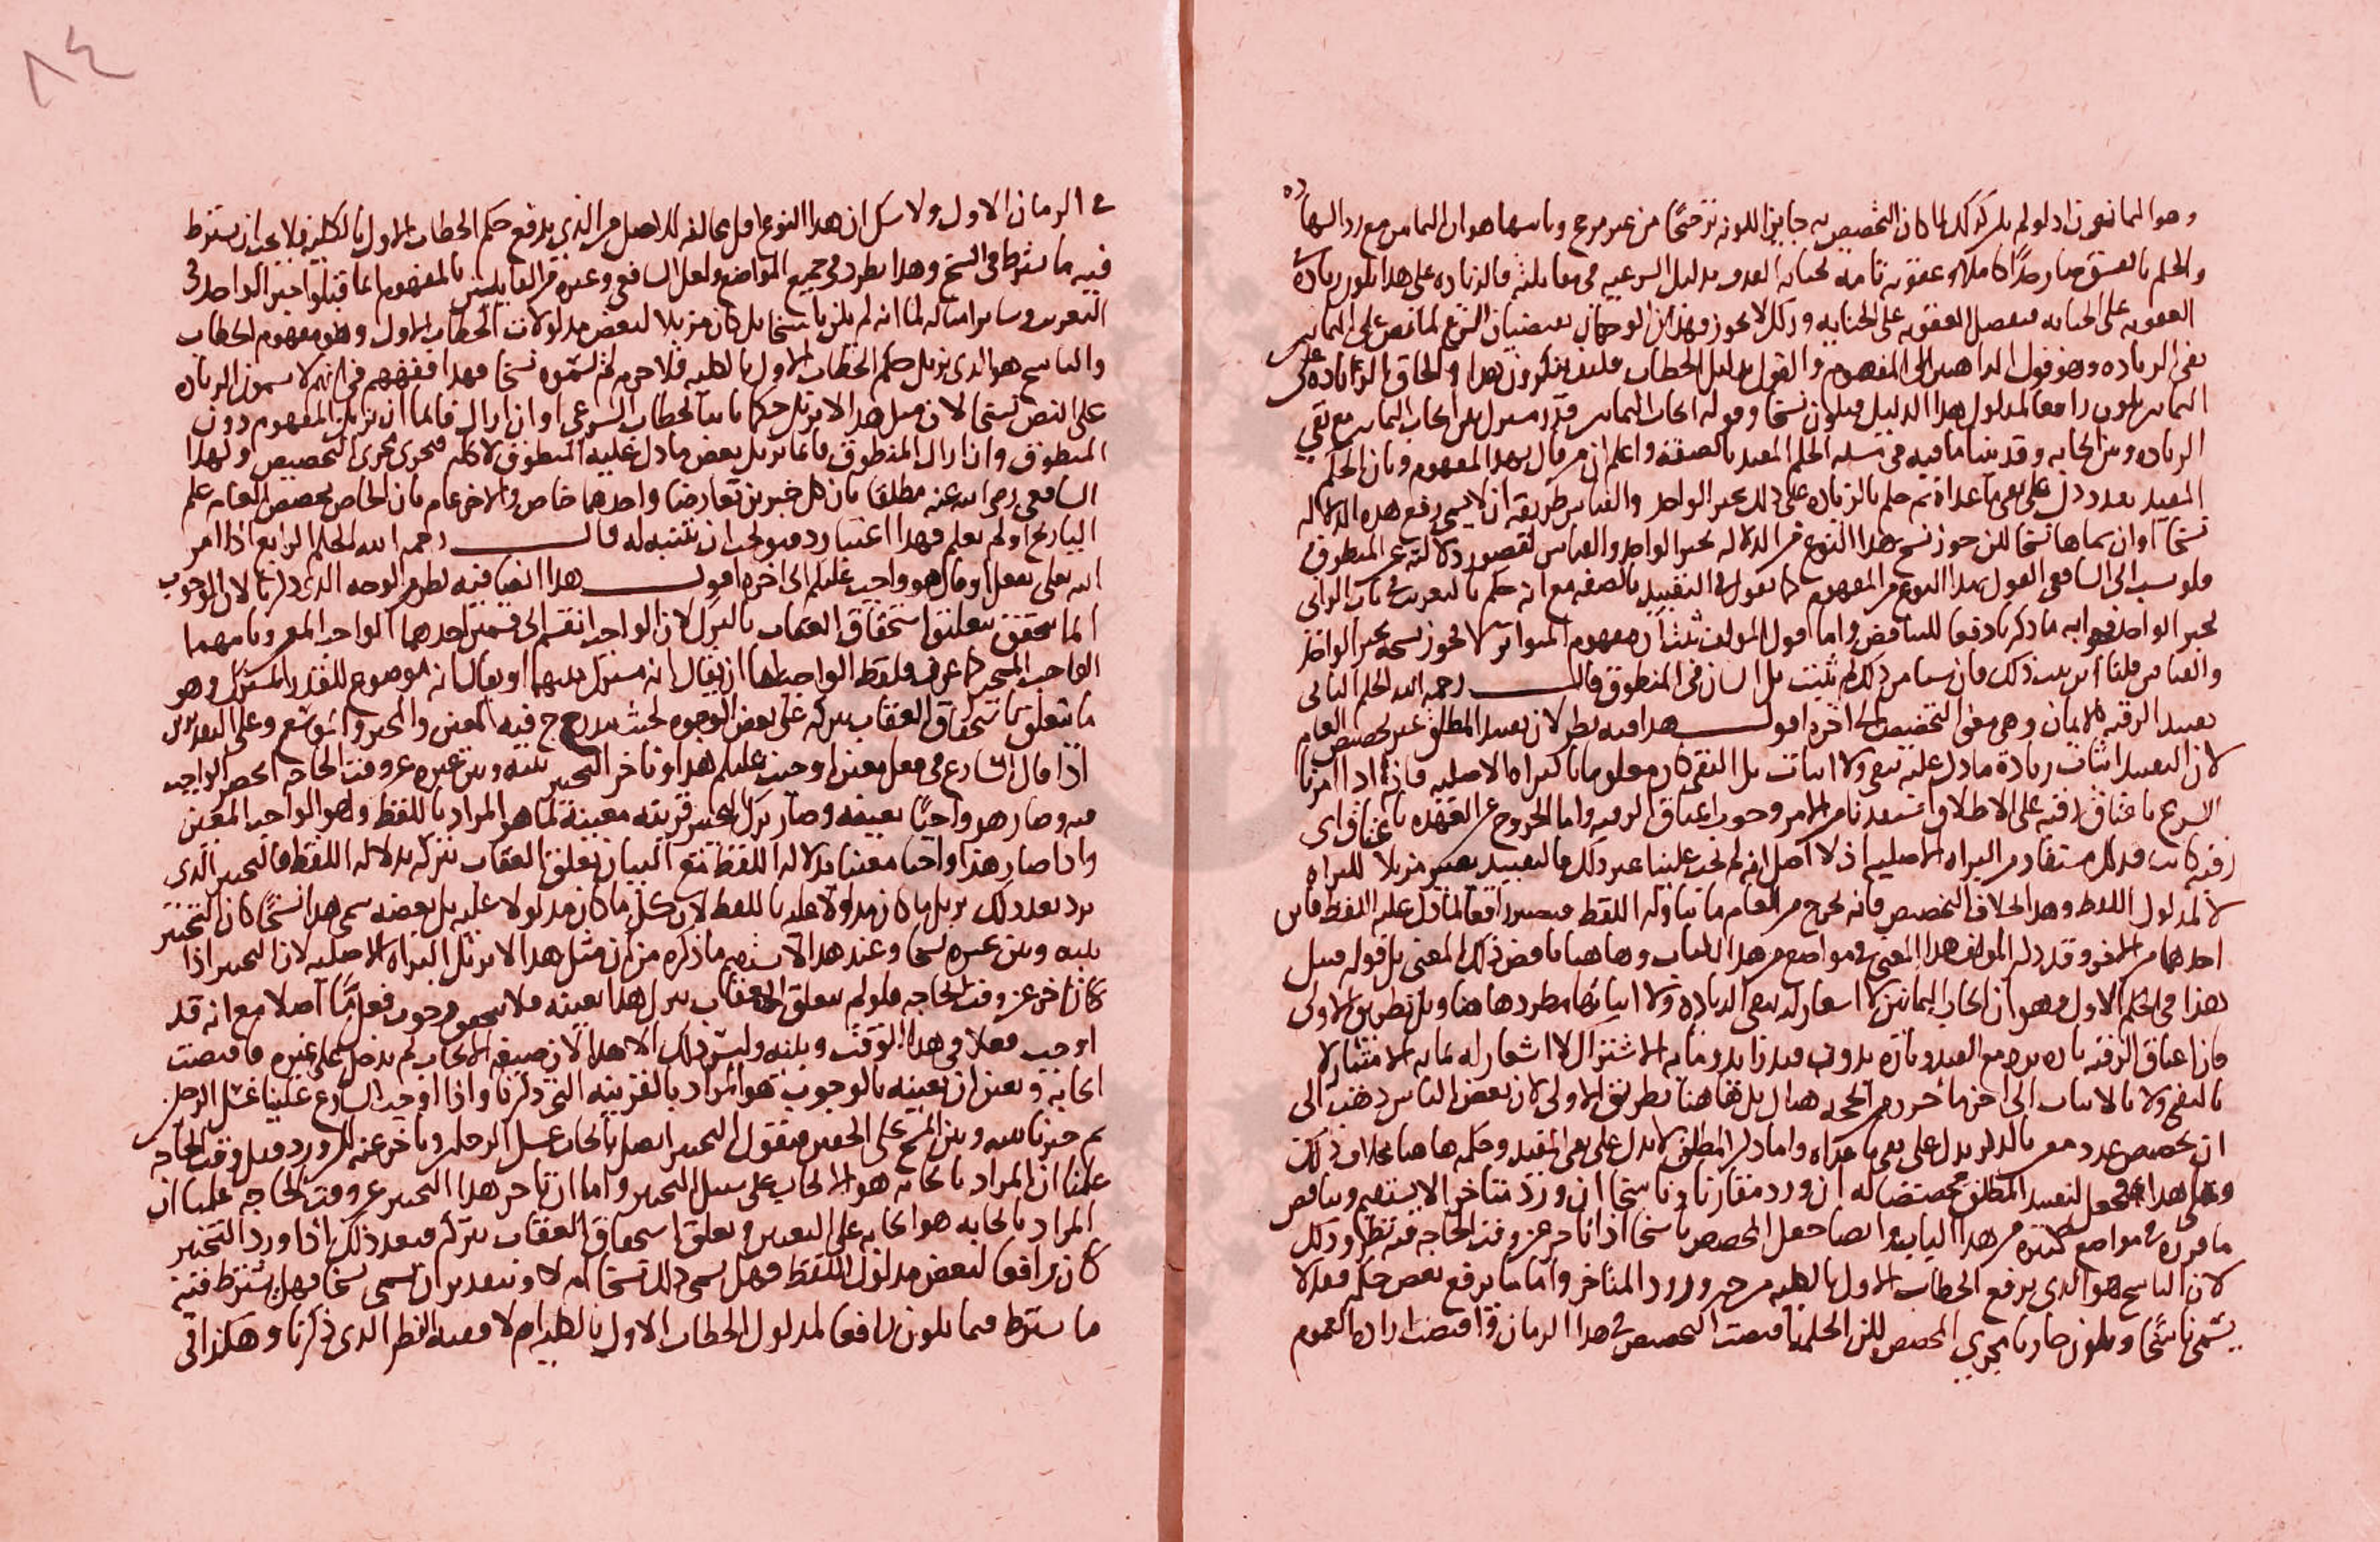 وهو الثمانون اذ لو لم يكن كذلك لما كان التخصيص به جايزا لكونه ترجيحًا من غير مرجح وثانيها هو ان الثمانين مع رد الشهاده
والحكم بالفسق صار حدًّا كاملا وعقوبه تامه لجنايه القذف بدليل الشرعيه في مقابلته فالزياده على هذا تكون زيادة
العقوبه على الجنايه فتفضل العقوبه على الجنايه وذلك لا يجوز فهذان الوجهان يقتضيان الشرع لما نص على الثمانين
نفى الزياده وهو قول الذاهبين الى المفهوم والقول بدليل الخطاب فكيف ينكرون هذا والحاق الزياده على
الثمانين يكون رافعا لمدلول هذا الدليل فيكون نسخا وقوله ايجاب الثمانين قدر مشترك بين ايجاب الثمانين مع نفي
الزياده وبين ايجابه وقد بينا ما فيه في مسله الحكم المقيد بالصفه واعلم ان من قال بهذا المفهوم وبان الحكم
المقيد بعدد دل على نفى ما عداه ثم حكم بالزياده على ذلك بخبر الواحد والقياس طريقه ان لا يسمي رفع هذه الدلاله
نسخا او ان سماها نسخا لكن جوز نسخ هذا النوع من الدلاله بخبر الواحد والقياس لقصور دلالته عن المنطوق
فلو نسب الى الشافعي القول بهذا النوع من المفهوم كما يقول في التقييد بالصفه مع انه حكم بالتغريب في باب الزاني
بخبر الواحد فجوابه ما ذكرنا دفعا للتناقض واما قول المولف ثبت ان مفهوم المتواتر لا يجوز نسخه بخبر الواحد
والقياس قلنا اين ثبت ذلك فان شيا من ذلك لم يثبت بل الشان في المنطوق قال رحمه الله الحكم الثاني
تقييد الرقبه بالايمان وهي معنى التخصيص الى اخره اقول هذا فيه نظر لان تقييد المطلق غير تخصيص العام
لان التقييد اثبات زيادة ما دل عليه بنفي ولا اثبات بل النفي كان معلوما بالبراه الاصليه فانه اذا امرنا
الشرع باعتاق رقبه على الاطلاق استفدنا من الامر وجوب اعتاق الرقبه واما الخروج عن العهده باعتاق اي
رقبه كانت فذلك مستفاد من البراه الاصليه اذ الاصل انه لم يجب علينا غير ذلك فالتقييد يصير مزيلا للبراه
لا لمدلول اللفظ وهذا بخلاف التخصيص فانه يخرج من العام ما تناوله اللفظ فيصير رافعا لما دل عليه اللفظ فاين
احدهما من الاخر وقد ذكر المولف هذا المعنى في مواضع من هذا الكتاب وها هنا ناقض ذلك المعنى بل قوله قبل
هذا في الحكم الاول وهو ان ايجاب الثمانين لا اشعار له بنفى الزياده ولا اثباتها مطرد ها هنا وبل بطريق الاولى
فان اعتاق الرقبه تاره يرد مع القيد وتاره بدون قيد فما به الاشتراك لا اشعار له بما به الامتياز لا
بالنفي ولا بالاثبات الى اخر ما ذكره من الحجه هناك بل ها هنا بطريق الاولى لان بعض الناس ذهب الى
ان تخصيص عدد معين بالذكر يدل على نفى ما عداه واما ذكر المطلق لا يدل على نفى المقيد وحكمه ها هنا بخلاف ذلك
وعلى هذا فجعل تقييد المطلق تخصيصا له ان ورد مقارنا وناسخا ان ورد متاخرا لا يستقيم ويناقض
ما قرره في مواضع كثيره من هذا الباب وايضا جعل المخصص ناسخا اذا تاخر عن وقت الحاجه فيه نظر وذلك
لان الناسخ هو الذي يرفع الخطاب الاول بالكليه من حين ورود المتاخر واما ما يرفع بعض حكمه فقد لا
يسمى ناسخًا ويكون جاريا مجرى المخصص لكن الحكمه اقتضت التخصيص في هذا الزمان واقتضت اراده العموم
في الزمان الاول ولا شك ان هذا النوع اقل مخالفه للاصل من الذي يرفع حكم الخطاب الاول بالكليه فلا يجب ان يشترط
فيه ما يشترط في النسخ وهذا يطرد في جميع المواضع ولعل الشافعي وغيره من القايلين بالمفهوم انما قبلوا خبر الواحد في
التغريب وساير امثاله لما انه لم يكن ناسخا بل كان مزيلا لبعض مدلولات الخطاب الاول وهو مفهوم الخطاب
والناسخ هو الذي يزيل حكم الخطاب الاول بالكليه فلا جرم لم يسموه نسخا فهذا فقههم في انهم لا يسمون الزياده
على النص نسخا لان مثل هذا لا يزيل حكما ثابتا بالخطاب الشرعي او ان ازال فانما ازال المفهوم دون
المنطوق وان ازال المنطوق فانما يزيل بعض ما دل عليه المنطوق لا كله فيجرى مجرى التخصيص ولهذا
الشافعي رضي الله عنه مطلقا بان كل خبرين تعارضا واحدهما خاص والاخر عام بان الخاص يخصص العام علم
التاريخ او لم يعلم فهذا اعتبار دقيق يجب ان يتنبه له قال رحمه الله الحكم الرابع اذا امر
الله تعالى بفعل او قال هو واجب عليكم الى اخره اقول هذا ايضا فيه نظر من الوجه الذي ذكرنا لان الوجوب
انما يتحقق بتعلق استحقاق العقاب بالترك لان الواجب انقسم الى قسمين احدهما الواجب المعين وثانيهما
الواجب المخير كما عرف ولفظ الواجب اما ان يقال انه مشترك بينهما او يقال انه موضوع للقدر المشترك وهو
ما يتعلق استحقاق العقاب بتركه على بعض الوجوه بحيث يندرج فيه المعين والمخير والموسع وعلى التقديرين
اذا قال الشارع في فعل معين اوجبت عليكم هذا وتاخر التخيير بينه وبين غيره عن وقت الحاجه انحصر الواجب
فيه وصار هو واجبا بعينه وصار ترك التخيير قرينه معينة لما هو المراد باللفظ وهو الواجب المعين
واذا صار هذا واجبا معينا بدلاله اللفظ مع البيان تعلق العقاب بتركه بدلاله اللفظ فالتخيير الذي
يرد بعد ذلك يزيل ما كان مدلولا عليه باللفظ لان كل ما كان مدلولا عليه بل بعضه سمى هذا نسخًا كان التخيير
بينه وبين غيره نسخا وعند هذا لا يستقيم ما ذكره من ان مثل هذا لا يزيل البراه الاصليه لان التخيير اذا
كان تاخر عن وقت الحاجه فلو لم يتعلق العقاب بترك هذا بعينه فلا يتحقق وجوب فعل ما اصلا مع انه قد
اوجب فعلا في هذا الوقت وبينه وليس ذلك الا هذا لان صيغه الايجاب لم يدخل على غيره فاقتضت
ايجابه وتعين ان تعيينه بالوجوب هو المراد بالقرينه التي ذكرنا واذا اوجب الشارع علينا غسل الرجلين
ثم خيرنا بينه وبين المسح على الخفين فنقول التخيير ان اتصل بايجاب غسل الرجلين وتاخر عنه لكن ورد قبل وقت الحاجه
علمنا ان المراد بايجابه هو الايجاب على سبيل التخيير واما ان تاخر هذا التخيير عن وقت الحاجه علمنا ان
المراد بايجابه هو ايجابه على التعيين وتعلق استحقاق العقاب بتركه فبعد ذلك اذا ورد التخيير
كان رافعا لبعض مدلول اللفظ فهل يسمى ذلك نسخا ام لا وبتقدير ان يسمى نسخا فهل يشترط فيه
ما يشترط فيما يكون رافعا لمدلول الخطاب الاول بالكليه ام لا ففيه النظر الذي ذكرنا وهكذا في
٨٤